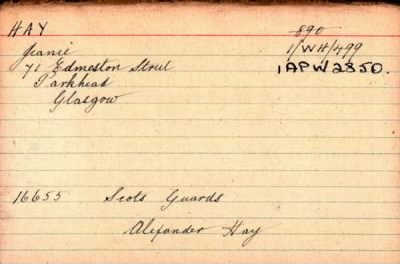 HAY
890
Jeanie
1/WH/499
71 Edmeston Street
1APW2850.
Parkhead
Glasgow
16655 Scots Guards
Alexander Hay